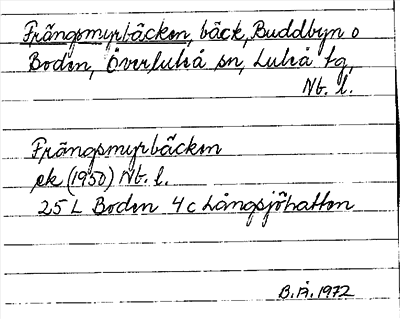 Frängsmyrbäcken, bäck, Buddbyn o
Boden, Överluleå sn, Luleå tg,
Nb. l.
Frängsmyrbäcken
ek (1950) Nb. l.
25 L Boden 4 c Långsjöhatten
B.Å. 1972